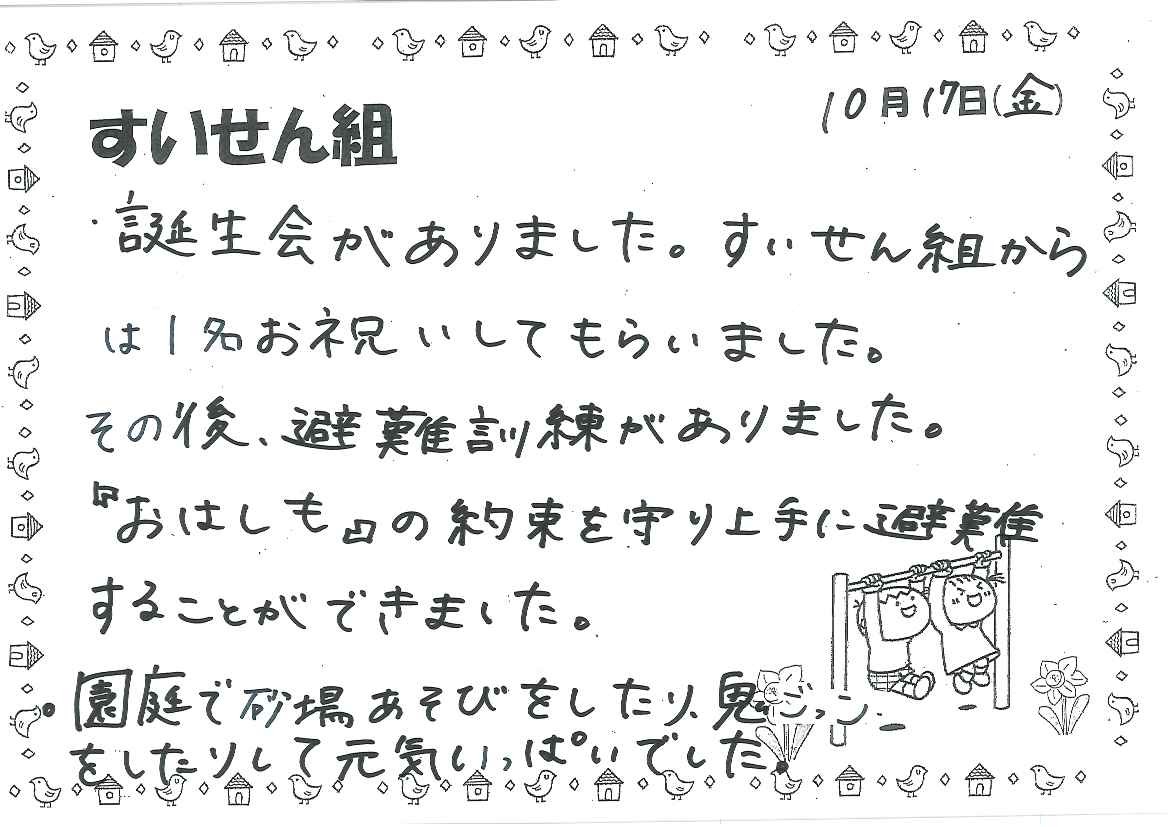 10月17日(金)
すいせん組
・誕生会がありました。すいせん組から
は1名お祝いしてもらいました。
その後、避難訓練がありました。
『おはしも』の約束を守り上手に避難
することができました。
・園庭で砂場あそびをしたり、鬼ごっこ
をしたりして元気いっぱいでした。